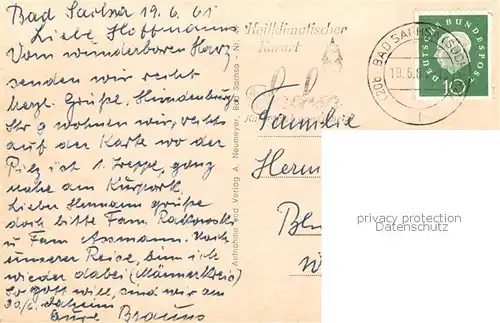 Bad Sachsa 19.6.61
Liebe Hoffmanns
Vom wunderbaren Harz
senden wir recht
herzl. Grüße. Hindenburg
Str 9 wohnen wir, rechts
auf der Karte wo der
Pilz ist 1. Treppe, ganz
nahe am Kurpark.
Lieber Hermann grüße
doch bitte Fam.
u Fam Assmann. Nach
unserer Reise, bin ich
wieder dabei (Männerkreis)
So Gott will, sind wir am
30/6. daheim
Eure Brauns
Aufnahme und Verlag A. Neumeyer, Bad Sachsa - Nr.
Heilklimatischer
Kurort
(20b) BAD SACHSA (SÜDHARZ)
19.6.61
DEUTSCHE BUNDESPOST
10
Familie
Herm
privacy protection
Datenschutz